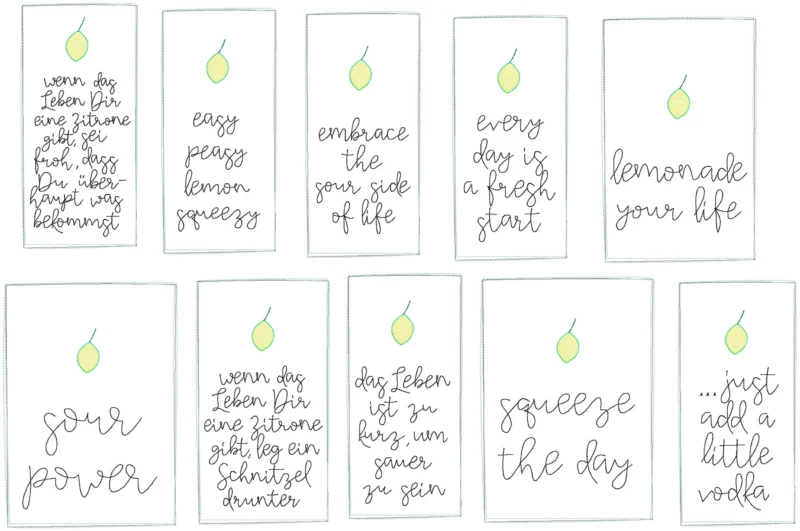 wenn das
Leben Dir
eine Zitrone
gibt, sei
froh, dass
Du über-
haupt was
bekommst
easy
peasy
lemon
squeezy
embrace
the
sour side
of life
every
day is
a fresh
start
lemonade
your life
sour
power
wenn das
Leben Dir
eine Zitrone
gibt, leg ein
Schnitzel
drunter
das Leben
ist zu
kurz, um
sauer
zu sein
squeeze
the day
...just
add a
little
vodka